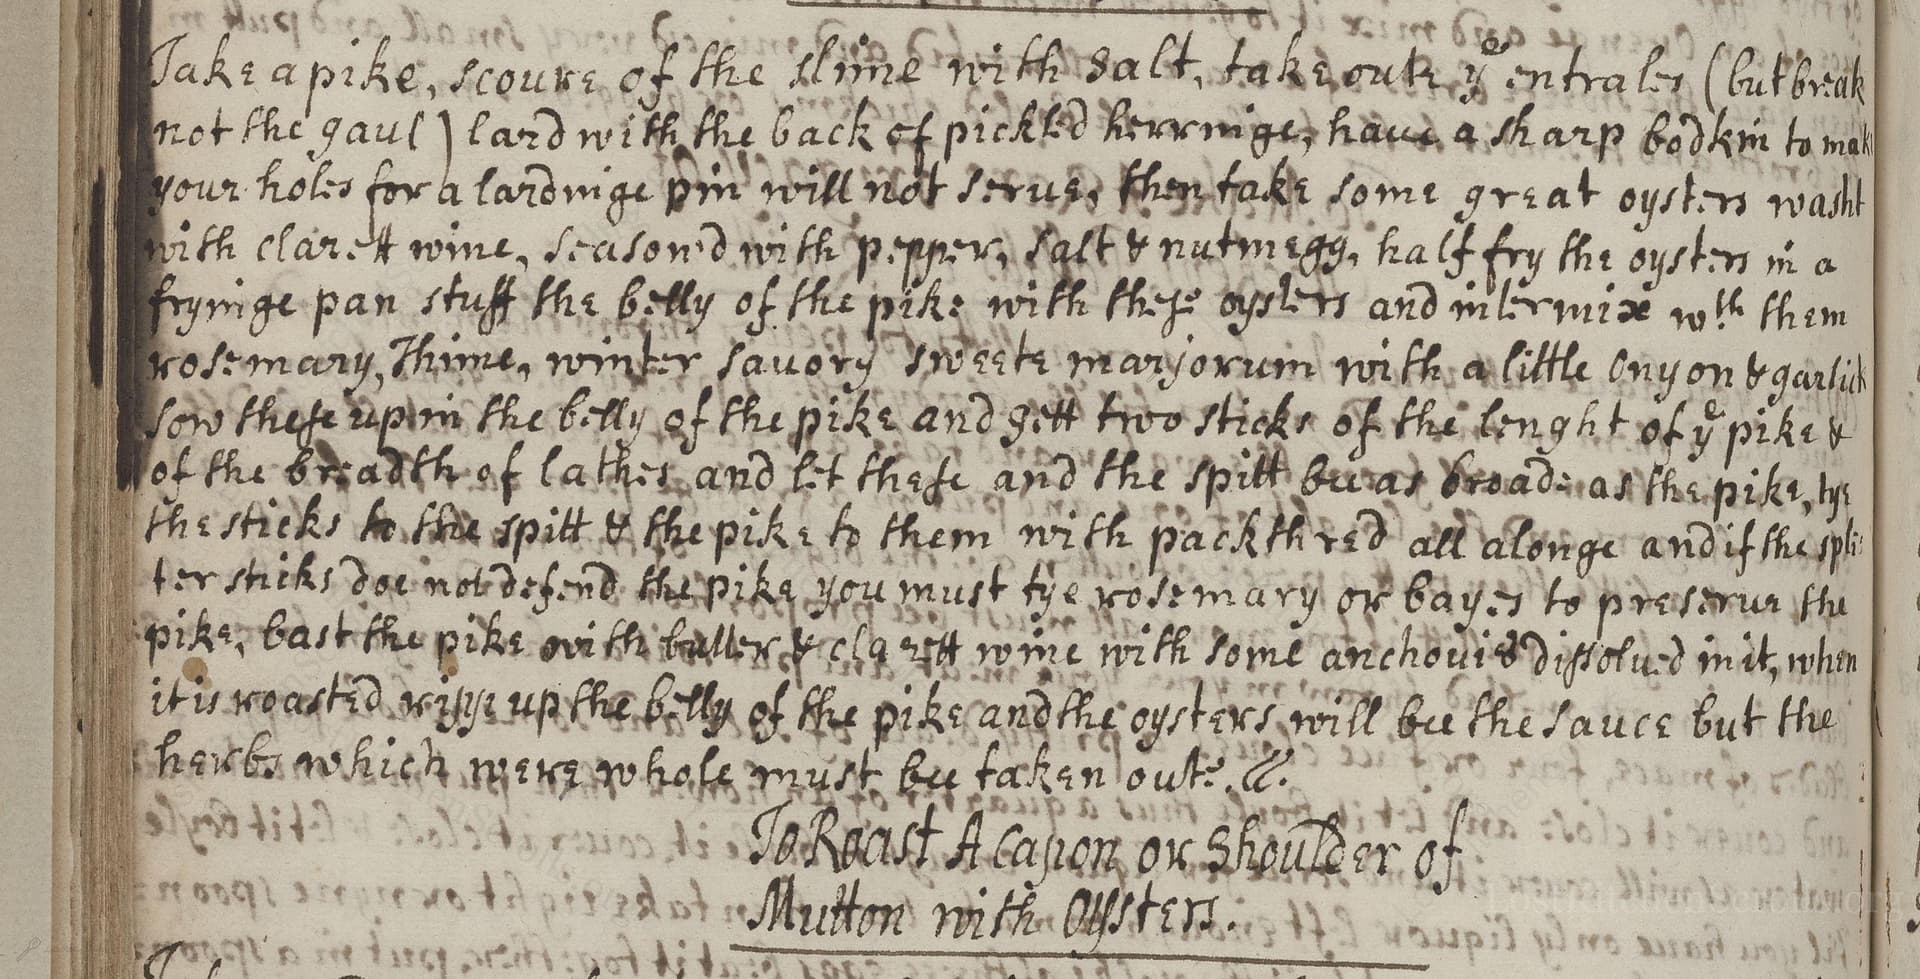 Take a pike, scoure of the slime with Salt, take oute yͤ entrales (but break
not the gaul) lard with the back of pickled herringe, haue a sharp bodkin to mak
your holes for a lardinge pin will not serue, then take some great oysters washt
with clarett wine, season'd with pepper, salt & nutmegg, half fry the oysters in a
fryinge pan stuff the belly of the pike with these oysters and intermix wᵗʰ them
rosemary, Thime, winter sauory sweete marjorum with a little Onyon & garlick
sow these up in the belly of the pike and gett two sticks of the lenght of yͤ pike &
of the breadth of lathes and let these and the spitt bee as broade as the pike, tye
the sticks to the spitt & the pike to them with packthred all alonge and if the splin
ter sticks doe not defend the pike you must tye rosemary or bayes to preserue the
pike, bast the pike with butter & clarett wine with some anchouies dissolued in it, when
it is roasted rippe up the belly of the pike and the oysters will bee the sauce but the
herbs which were whole must bee taken oute.
To Roast A Capon or Shoulder of
Mutton with Oysters.